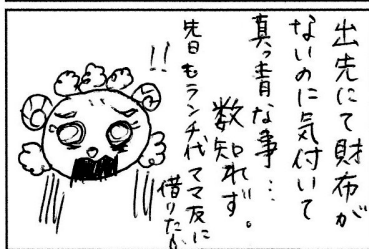 出先にて財布が
ないのに気付いて
真っ青な事…
数知れず。
先日もランチ代ママ友に
借りたし
!!